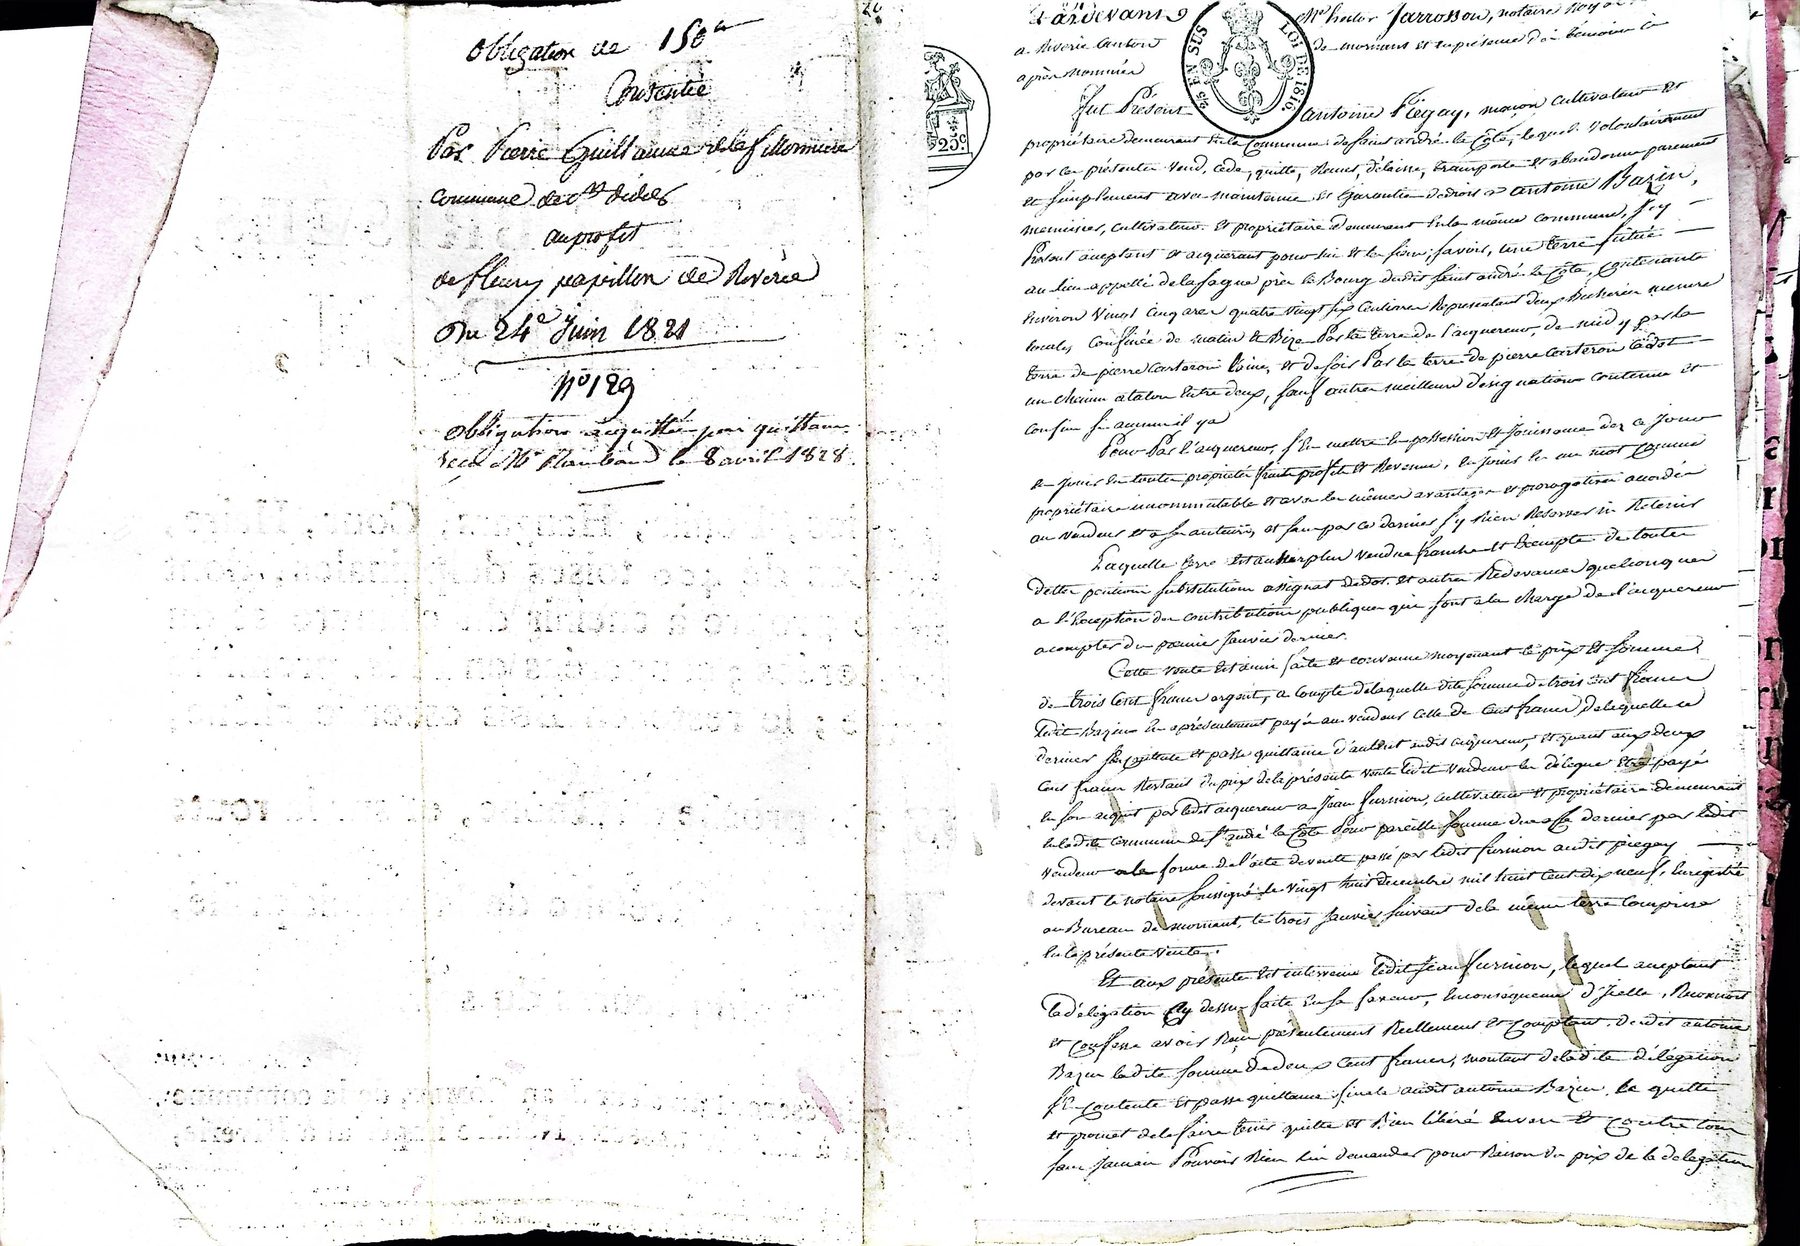 obligation de 150 fr
Consentie
Par Pierre Guillaume de la fillonniere
commune de St didier
au profit
de fleury papillon de Riverie
Du 24e Juin 1821
No 129
obligation acquittée par quittance
le 8 avril 1828
26
25 EN SUS
LOI DE 1816
25c
Pardevant Me hector Jarrosson, notaire Royal
a Riverie Canton de mornant et en présence des témoins ci
après nommés
fut Présent antoine Piégay, maçon cultivateur et
propriétaire demeurant en la Commune de saint andré la Côte, lequel volontairement
par ces présentes vend, cède, quitte, Remet, délaisse, transporte et abandonne purement
et simplement avec maintenue et Garantie de droit a antoine Bazin,
menuisier, cultivateur et propriétaire demeurant en la même commune, ici
Présent acceptant et acquerant pour lui et les siens, savoir, une terre située
au lieu appellé de la fague près le Bourg dudit saint andré la Côte, contenante
Environ vingt cinq ares quatre vingt six centiares Représentant deux Bicherées mesure
locale, Confinée de matin et Bize Par la terre de l'acquereur, de midy par la
terre de pierre Carteron et de soir Par la terre de pierre Carteron cadet
un chemin entre deux, sauf autres meilleure désignation contenue et
confins si aucuns il y a
Pour Par l'acquereur s'En mettre en possession et Jouissance dez ce Jour
en Jouir en toute propriété fruits profits et Revenus, en Jouir en un mot comme
propriétaire incommutable et avec les mêmes avantages et prérogatives accordés
au vendeur et a ses auteurs, et sans par ce dernier s'y Rien Reserver ni Retenir
Laquelle terre est au surplus vendue franche et Exempte de toutes
dettes pensions substitutions assignat de dot et autres Redevances quelconques
a l'Exception des contributions publiques qui sont a la charge de l'acquereur
a compter du premier Janvier dernier.
Cette vente est ainsi faite et convenue moyenant le prix et somme
de trois Cent francs argent, a compte de laquelle dite somme de trois cent francs
ledit Bazin en a présentement payé au vendeur celle de Cent francs, de laquelle ce
dernier se contente et passe quittance d'autant audit acquereur, et quant aux deux
Cent francs Restant du prix de la présente vente ledit vendeur les délègue Etre payé
en son acquit par ledit acquereur a Jean furnion, cultivateur et propriétaire demeurant
en ladite commune de St andré la Côte Pour pareille somme due a ce dernier par ledit
vendeur a la forme de l'acte de vente passé par ledit furnion audit piegay
devant le notaire soussigné le vingt huit decembre mil huit Cent dix neuf, Enrégistré
au Bureau de mornant, le trois Janvier suivant de la même terre Comprise
en la présente vente.
Et aux présentes est intervenu ledit Jean furnion, lequel acceptant
la délégation cy dessus faite en sa faveur, en conséquence d'Icelle, Reconnoit
et confesse avoir Reçu présentement Réellement et comptant dudit antoine
Bazin ladite somme de deux Cent francs, montant de ladite délégation
s'En contente et passe quittance finale audit antoine Bazin, le quitte
et promet de le faire tenir quitte et Bien libéré Envers et Contre tous
sans Jamais Pouvoir Rien lui demander pour Raison du prix de la délégation